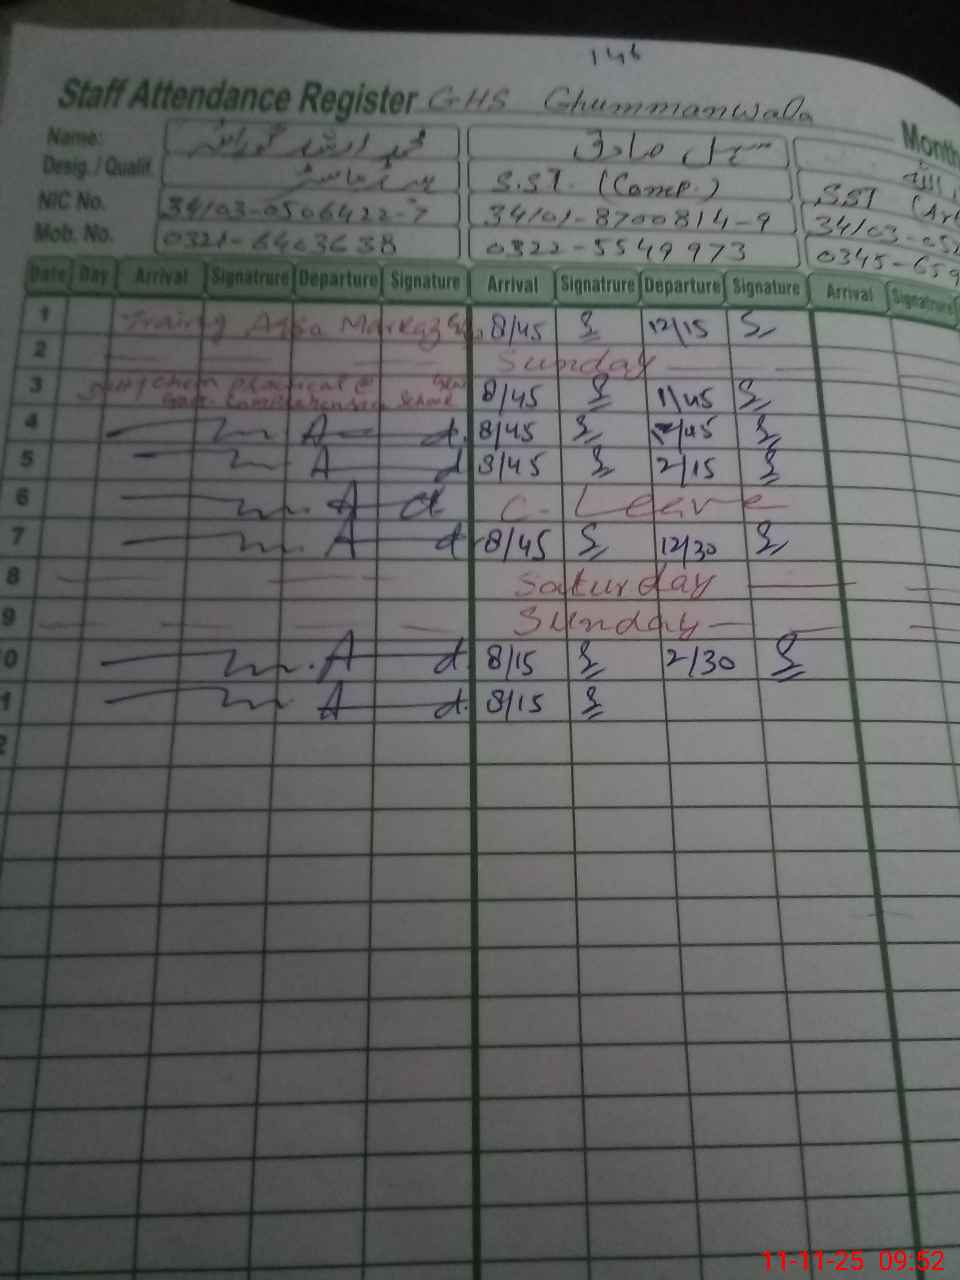 146
Staff Attendance Register GHS Ghummanwala Month
Name: سہیل صادق اللہ
Desig. / Qualif. S.ST. (Comp.) SST (Ar
NIC No. 34103-0506422-7 34101-8700814-9 34103-052
Mob. No. 0321-6403638 0322-5549973 0345-659
Date Day Arrival Signatrure Departure Signature Arrival Signatrure Departure Signature Arrival Signatrure
1 Training Markaz 8/45 12/15
2 Sunday
3 Chem practical @ School 8/45 11/45
4 A 8/45 /45
5 A 8/45 2/15
6 A C. Leave
7 A 8/45 12/30
8 Saturday
9 Sunday
0 A 8/15 2/30
1 A 8/15
2
11-11-25 09:52